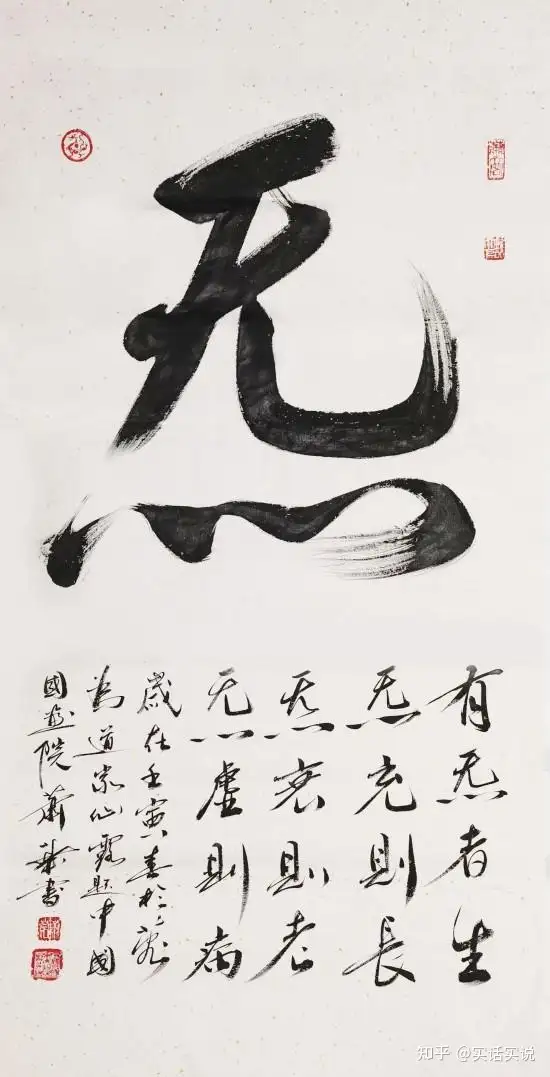 炁
有炁者生
炁充則長
炁衰則老
炁虛則病
歲在壬寅春於
為道家仙題中國
國畫院蕭書
知乎 @实话实说